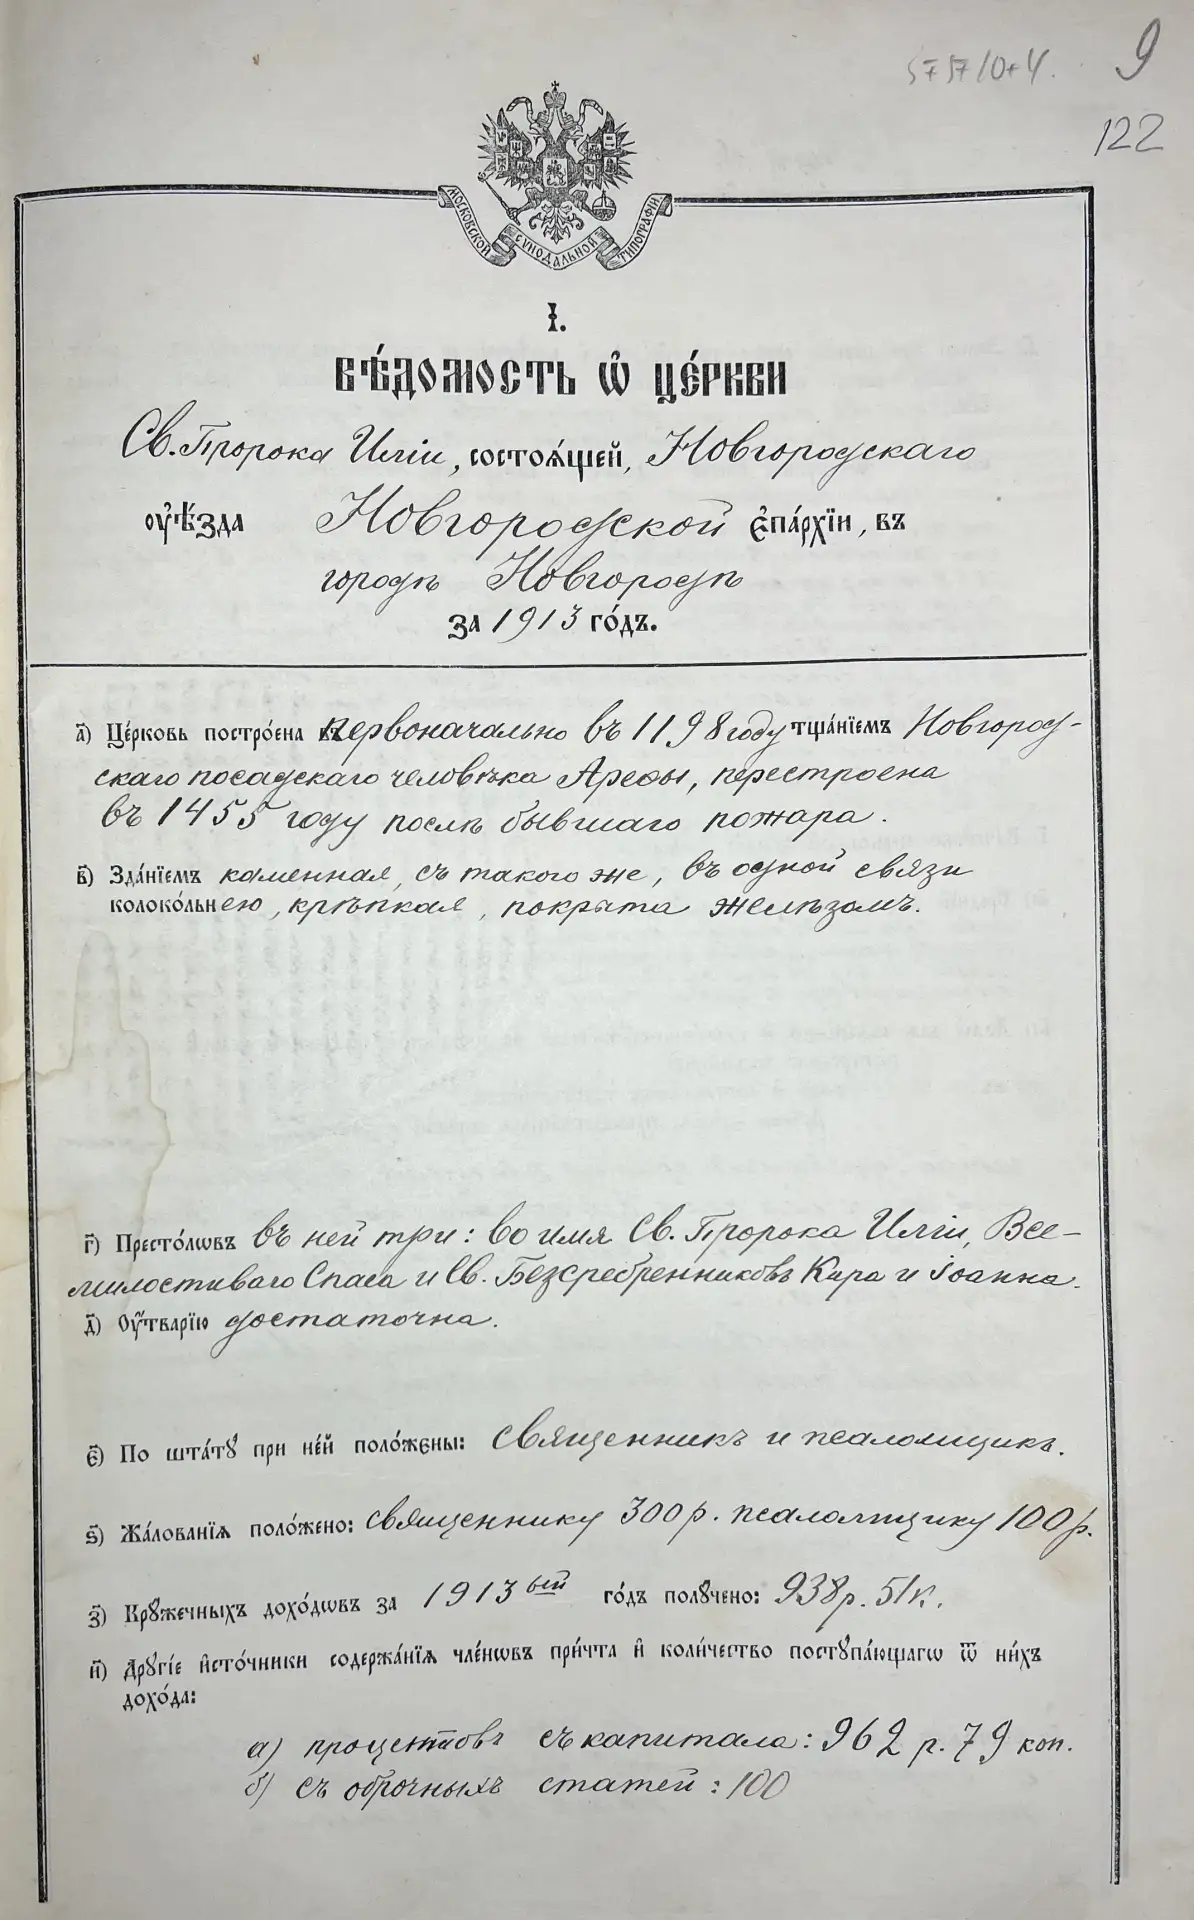 9
122
МОСКОВСКОЙ СѴНОДАЛЬНОЙ ТИПОГРАФІИ
І.
ВѢ́ДОМОСТЬ Ѽ ЦЕ́РКВИ
Св. Пророка Иліи, состоѧ́щей, Новгородскаго
ᲂу҆ѣ́зда Новгородской є҆па́рхїи, въ
городѣ Новгородѣ
за 1913 го́дъ.
а҃) Це́рковь постро́ена въ первоначально въ 1198 году тща́нїемъ Новгород-
скаго посадскаго человѣка Арефы, перестроена
въ 1455 году послѣ бывшаго пожара.
в҃) Зда́нїемъ каменная, съ такого же, въ одной связи
колоко́льнею, крѣпкая, покрыта желѣзомъ.
г҃) Престо́лѡвъ въ ней три: во имя Св. Пророка Иліи, Все-
милостиваго Спаса и Св. Безсребренниковъ Кира и Іоанна.
д҃) Оу҆́тварїю достаточна.
є҃) По шта́тꙋ при не́й поло́жены: священникъ и псаломщикъ.
ѕ҃) Жа́лованїѧ поло́жено: священнику 300 р. псаломщику 100 р.
з҃) Крꙋ́жечныхъ дохо́дѡвъ за 1913ый го́дъ полꙋ́чено: 938 р. 51 к.
и҃) Дрꙋгі́е и҆сто́чники содержа́нїѧ чле́нѡвъ при́чта и҆ коли́чество постꙋпа́ющагѡ ѿ ни́хъ
дохо́да:
а) процентовъ съ капитала: 962 р. 79 коп.
б) съ оброчныхъ статей: 100